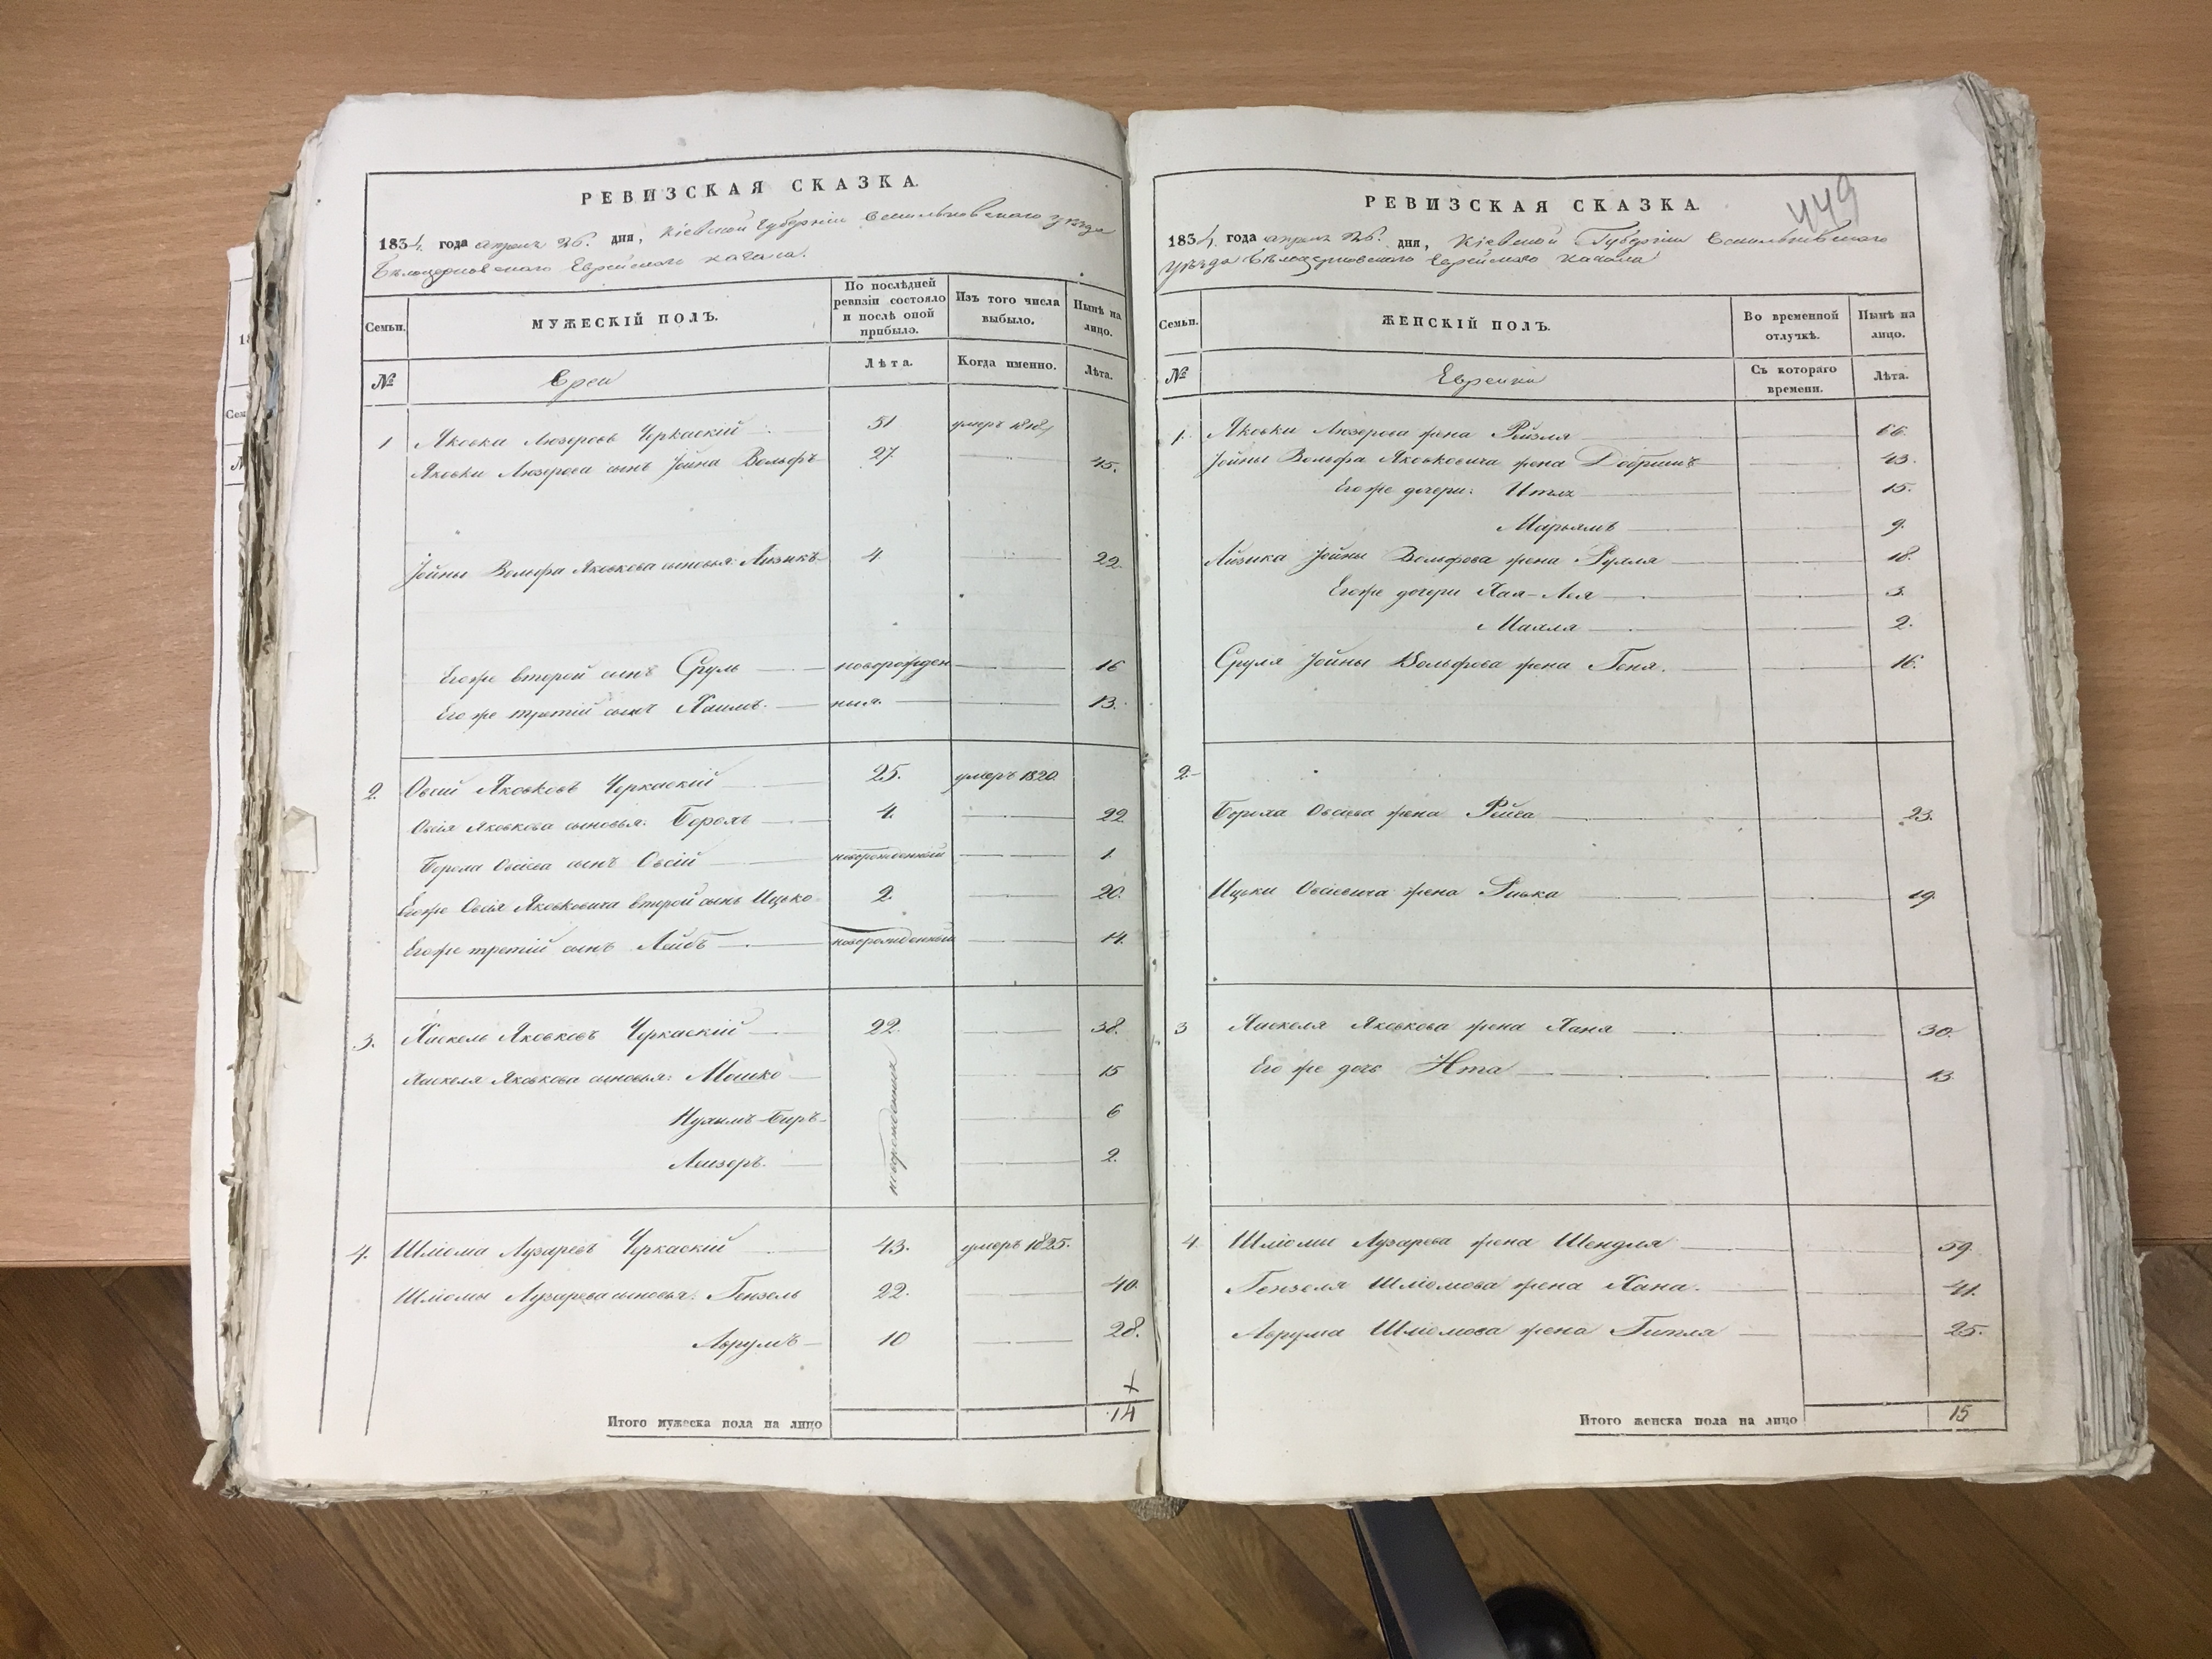 РЕВИЗСКАЯ СКАЗКА.
1834 года апреля 26. дня, Кіевской Губерніи Васильковского уѣзда
Бѣлоцерковского Еврейского кагала.
Семьи.
МУЖЕСКІЙ ПОЛЪ.
По послѣдней ревизіи состояло и послѣ оной прибыло.
Изъ того числа выбыло.
Нынѣ на лицо.
№
Евреи
Лѣта.
Когда именно.
Лѣта.
1 Яковки Лезеровъ Черкаскій 51 умеръ 1818
Яковки Лезерова сынъ Іойна Вольфъ 27. 45.
Іойны Вольфа Яковкова сыновья: Айзикъ 4 22.
Его же второй сынъ Сруль новорожден 16
Его же третій сынъ Хаимъ. ныя. 13.
2. Овсій Яковковъ Черкаскій 25. умеръ 1820.
Овсія Яковкова сыновья: Борохъ 4. 22.
Бороха Овсіева сынъ Овсій новорожденный 1.
Его же Овсія Яковковича второй сынъ Ицько 2. 20.
Его же третій сынъ Лейбъ новорожденный 14.
3. Хаскель Яковковъ Черкаскій 22. 38.
Хаскеля Яковкова сыновья: Мошко 15
Нухымъ-Беръ 6
Лейзеръ. 2.
новорожденныя
4. Шліома Лузаревъ Черкаскій 43. умеръ 1825.
Шліомы Лузарева сыновья: Гензель 22. 40.
Аврумъ 10 28.
Итого мужеска пола на лицо 14
449
РЕВИЗСКАЯ СКАЗКА.
1834 года апреля 26. дня, Кіевской Губерніи Васильковского
уѣзда Бѣлоцерковского Еврейского кагала
Семьи.
ЖЕНСКІЙ ПОЛЪ.
Во временной отлучкѣ.
Нынѣ на лицо.
№
Еврейки
Съ котораго времени.
Лѣта.
1. Яковки Лезерова жена Рейзля 66.
Іойны Вольфа Яковковича жена Добришъ 43.
Его же дочери: Итля 15.
Марьямъ 9.
Айзика Іойны Вольфова жена Рухля 18.
Его же дочери Хая-Лея 3.
Малля 2.
Сруля Іойны Вольфова жена Геня. 16.
2.
Бороха Овсіева жена Рейса 23.
Ицьки Овсіевича жена Ривка 19.
3 Хаскеля Яковкова жена Ханя 30.
Его же дочь Ита 13.
4. Шліомы Лузарева жена Шендля 59.
Гензеля Шліомова жена Хана. 41.
Аврума Шліомова жена Гитля 25.
Итого женска пола на лицо 15